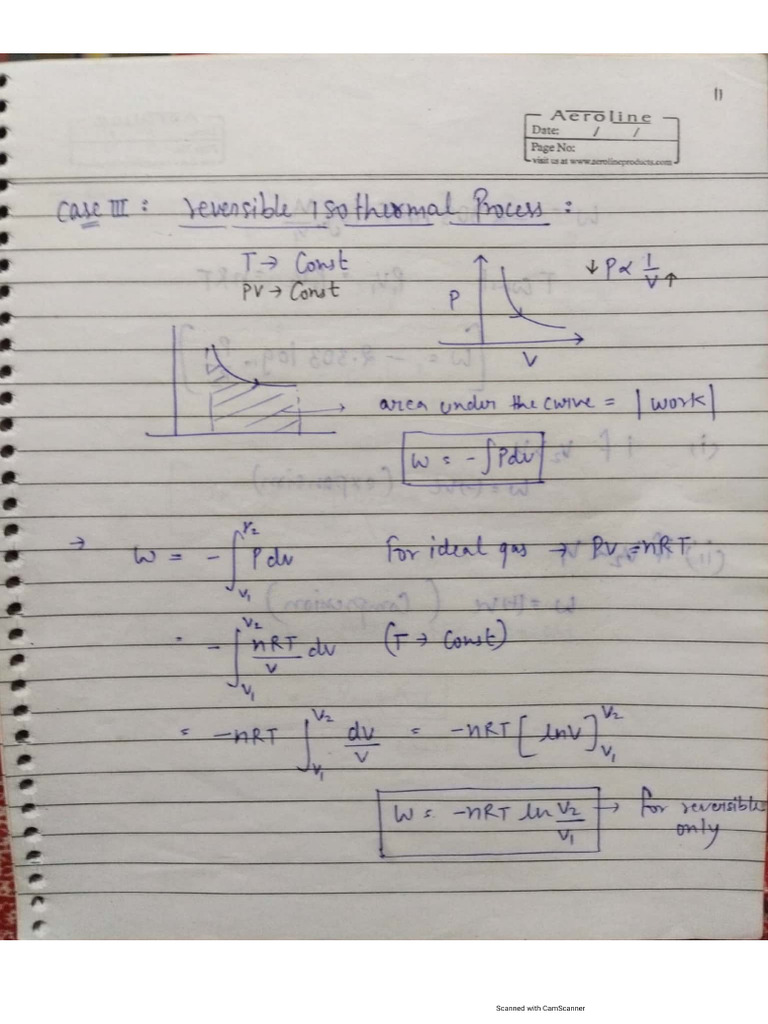 11
Aeroline
Date: / /
Page No:
visit us at www.aerolineproducts.com
Case III : reversible isothermal Process :
T → Const
PV → Const
P
V
↓P ∝ 1/V↑
area under the curve = |work|
W = -∫Pdv
→ W = -∫_{V1}^{V2} Pdv for ideal gas → PV = nRT
= -∫_{V1}^{V2} nRT/V dv (T → Const)
= -nRT ∫_{V1}^{V2} dv/V = -nRT [lnV]_{V1}^{V2}
W = -nRT ln V2/V1 → for reversible only
Scanned with CamScanner